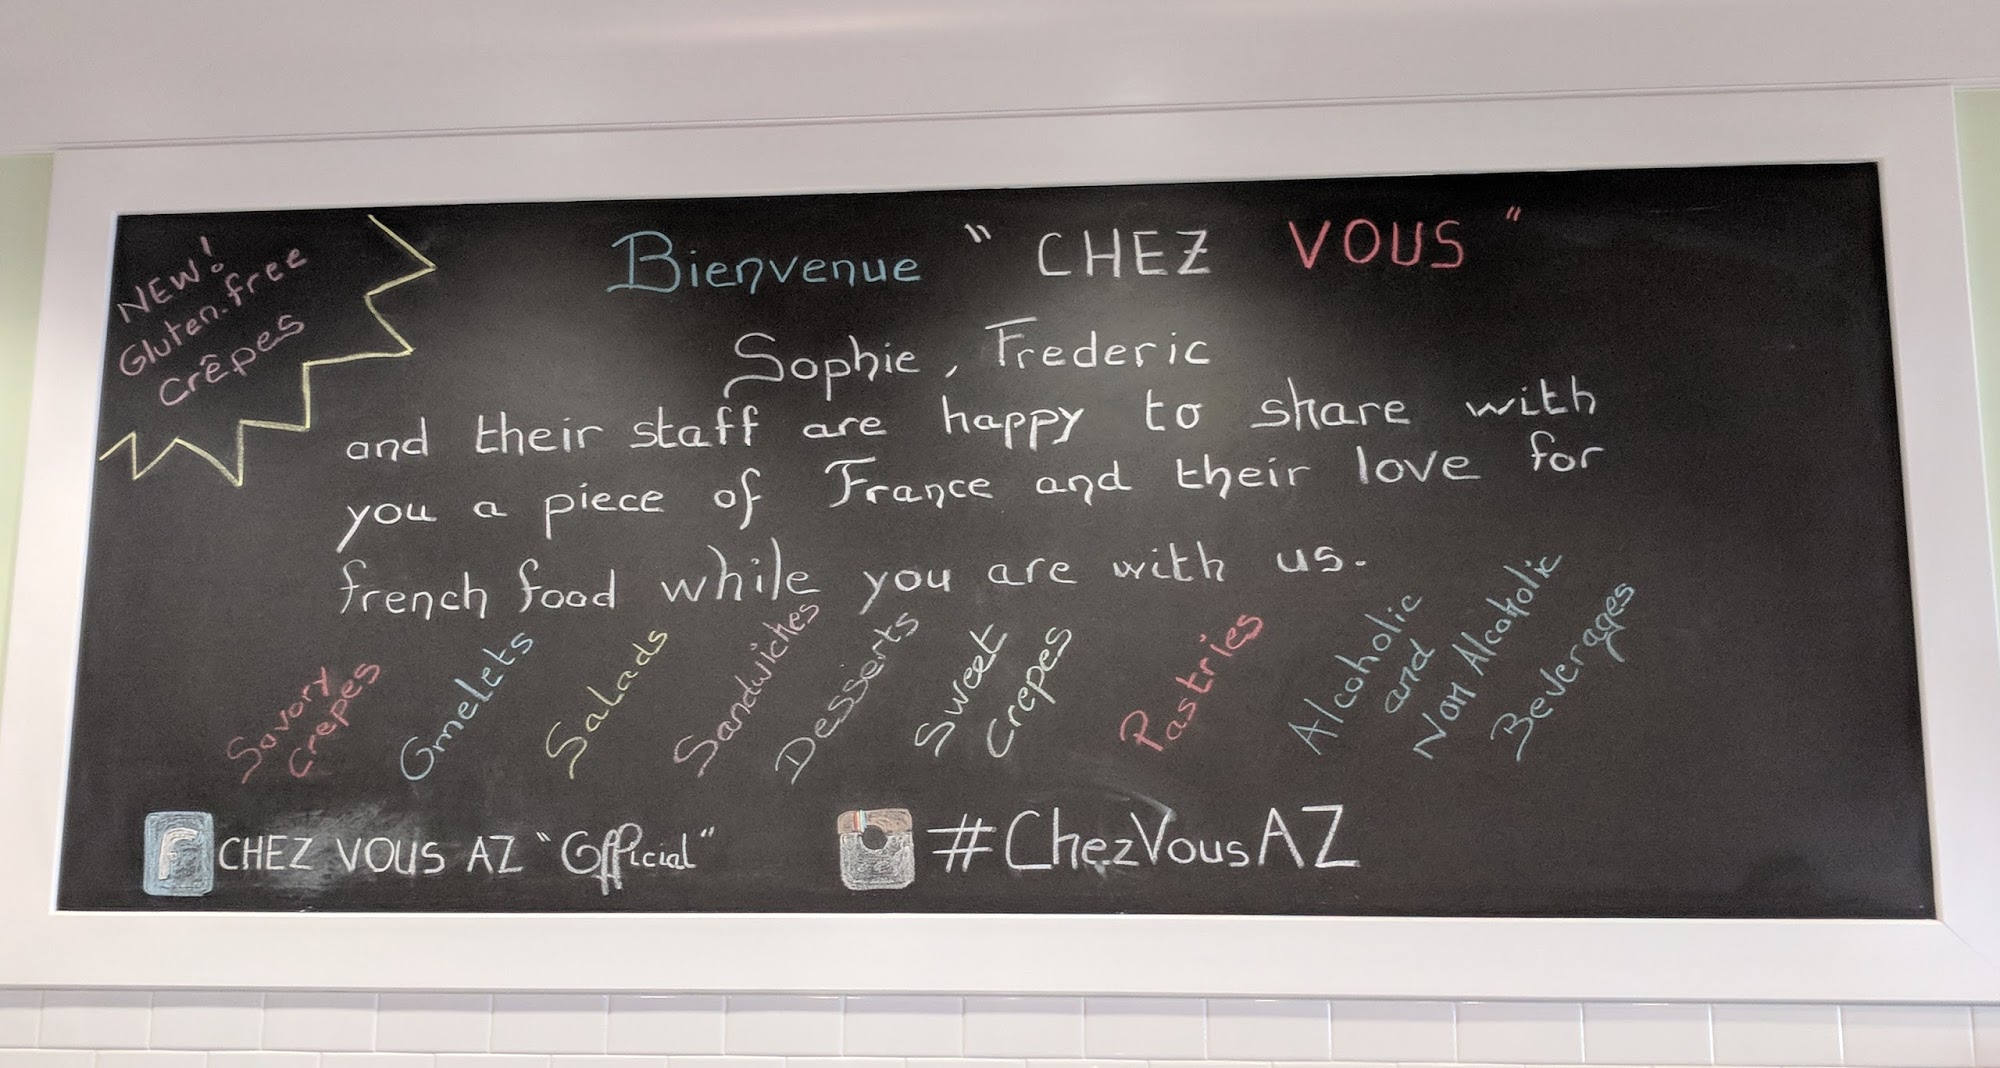 NEW!
Gluten.free
crêpes
Bienvenue "CHEZ VOUS"
Sophie, Frederic
and their staff are happy to share with
you a piece of France and their love for
french food while you are with us.
Savory
Crepes
Omelets
Salads
Sandwiches
Desserts
Sweet
Crepes
Pastries
Alcoholic
and
Non Alcoholic
Beverages
f CHEZ VOUS AZ "Official"
#ChezVousAZ